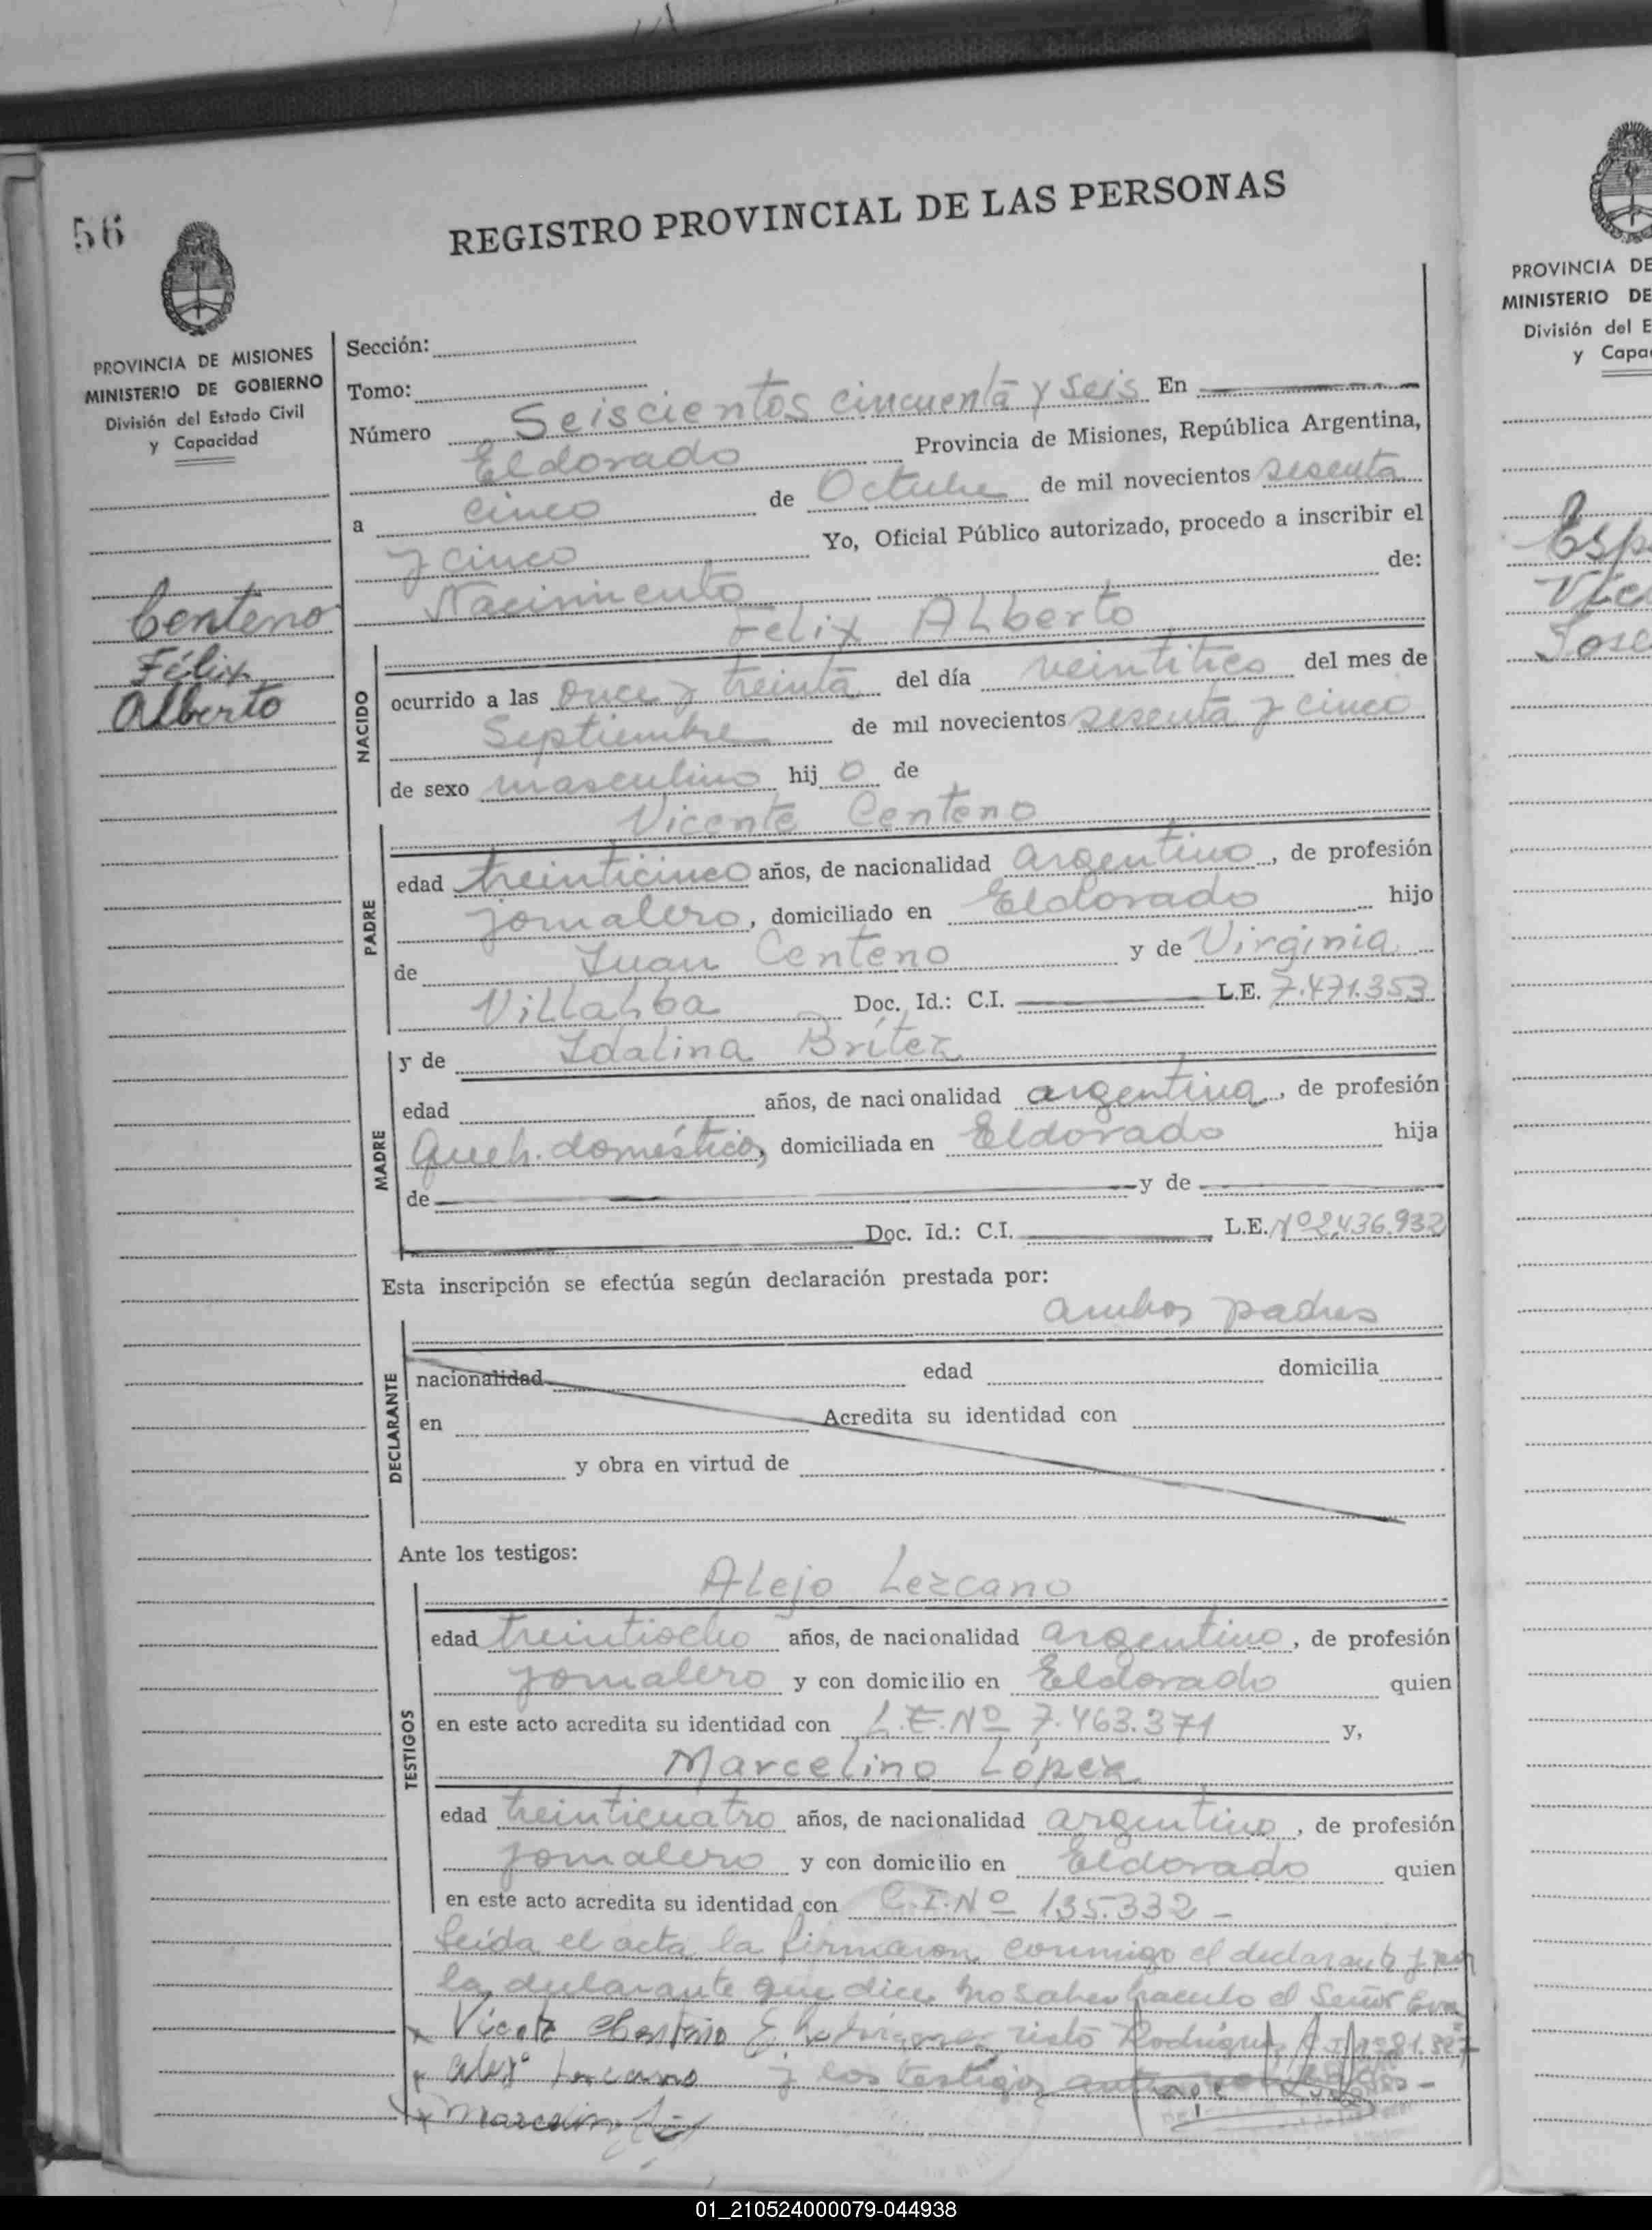 56
REGISTRO PROVINCIAL DE LAS PERSONAS
PROVINCIA DE MISIONES
MINISTERIO DE GOBIERNO
División del Estado Civil
y Capacidad
Centeno
Félix
Alberto
Sección:
Tomo:
Número Seiscientos cincuenta y seis En
Eldorado Provincia de Misiones, República Argentina,
a cinco de Octubre de mil novecientos sesenta
y cinco Yo, Oficial Público autorizado, procedo a inscribir el
Nacimiento de:
Felix Alberto
NACIDO
ocurrido a las once y treinta del día veintitres del mes de
Septiembre de mil novecientos sesenta y cinco
de sexo masculino hij o de
Vicente Centeno
PADRE
edad treinticinco años, de nacionalidad argentino, de profesión
jornalero, domiciliado en Eldorado hijo
de Juan Centeno y de Virginia
Villalba Doc. Id.: C.I. L.E. 7.471.353
MADRE
y de Idalina Brítez
edad años, de nacionalidad argentina, de profesión
Queh. domésticos, domiciliada en Eldorado hija
de y de
Doc. Id.: C.I. L.E. Nº 2.436.932
Esta inscripción se efectúa según declaración prestada por:
ambos padres
DECLARANTE
nacionalidad edad domicilia
en Acredita su identidad con
y obra en virtud de
Ante los testigos:
Alejo Lezcano
TESTIGOS
edad treintiocho años, de nacionalidad argentino, de profesión
jornalero y con domicilio en Eldorado quien
en este acto acredita su identidad con L.E. Nº 7.463.371 y,
Marcelino López
edad treinticuatro años, de nacionalidad argentino, de profesión
jornalero y con domicilio en Eldorado quien
en este acto acredita su identidad con C.I. Nº 135.332 -
Leída el acta la firmaron conmigo el declarante y por
la declarante que dice no saber hacerlo el Señor Eva
risto Rodríguez
y los testigos
PROVINCIA DE
MINISTERIO DE
División del E
y Capa
Esp
Vic
Jose
01_210524000079-044938